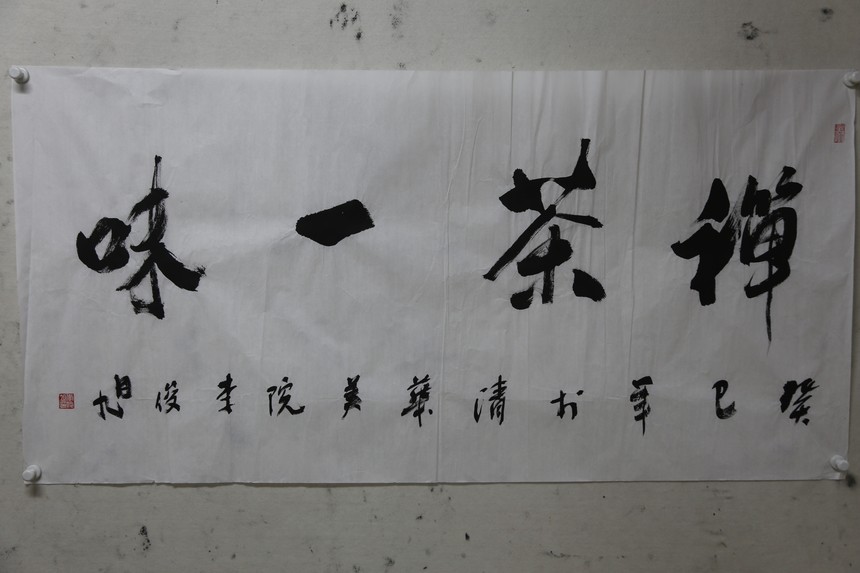 禪茶一味
癸巳年於清華美院李俊旭